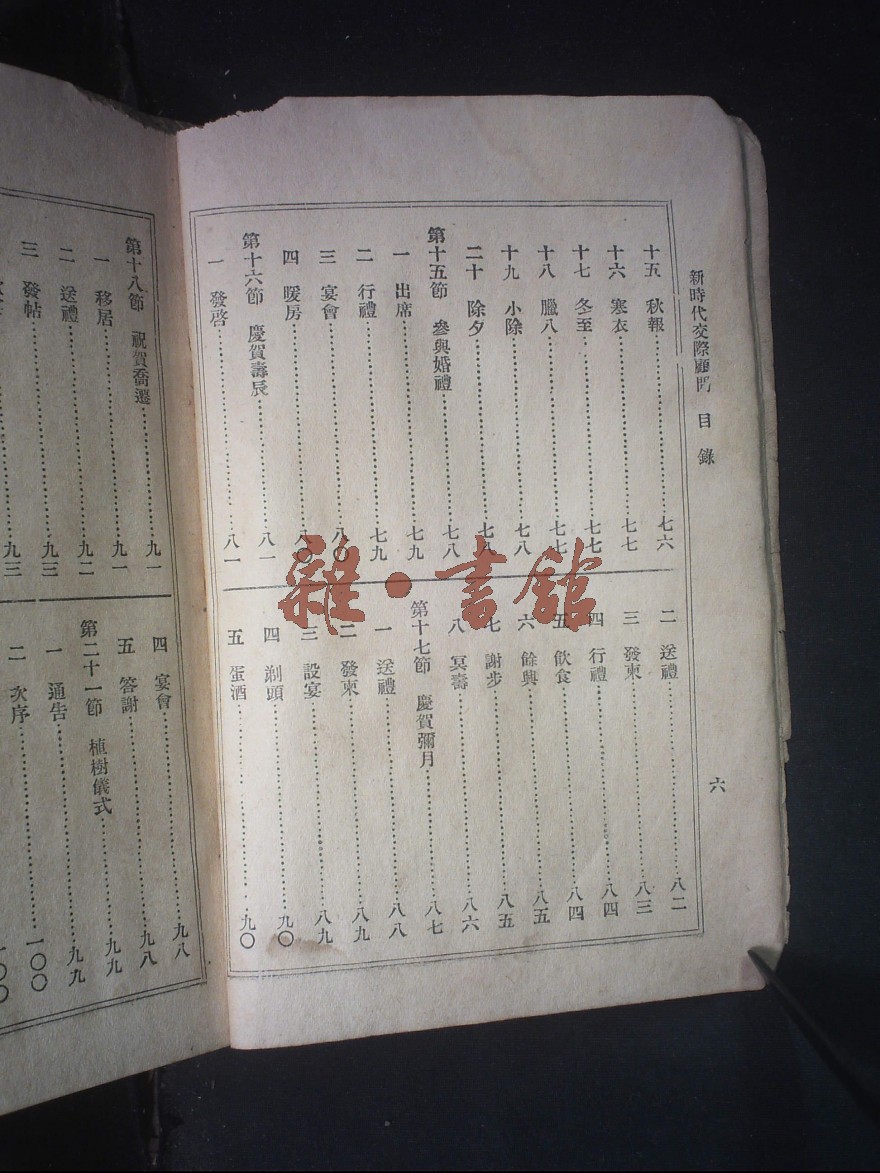 新時代交際顧問 目錄
六
十五 秋報 七六
十六 寒衣 七七
十七 冬至 七七
十八 臘八 七七
十九 小除 七八
二十 除夕 七八
第十五節 參與婚禮 七八
一 出席 七九
二 行禮 七九
三 宴會 八〇
四 暖房 八〇
第十六節 慶賀壽辰 八一
一 發啓 八一
二 送禮 八二
三 發柬 八三
四 行禮 八四
五 飲食 八四
六 餘興 八五
七 謝步 八五
八 冥壽 八六
第十七節 慶賀彌月 八七
一 送禮 八八
二 發柬 八九
三 設宴 八九
四 剃頭 九〇
五 蛋酒 九〇
第十八節 祝賀喬遷 九一
一 移居 九一
二 送禮 九二
三 發帖 九三
九三
四 宴會 九八
五 答謝 九八
第二十一節 植樹儀式 九九
一 通告 九九
二 次序 一〇〇
一〇〇
雜·書館